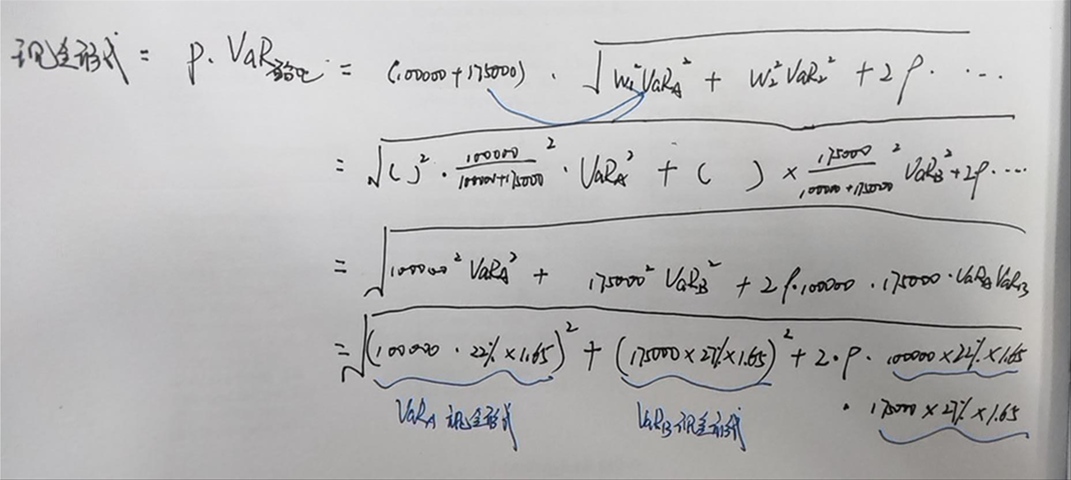 现金形式 = P · VaR组合 = (100000+175000) · √(W₁²VaR_A² + W₂²VaR₂² + 2ρ· ...
= √( )² · 100000/(100000+175000)² · VaR_A² + ( ) × 175000/(100000+175000)² VaR_B² + 2ρ· ...
= √(100000² VaR_A² + 175000² VaR_B² + 2ρ·100000 · 175000 · VaR_A VaR_B
= √((100000 · 22% × 1.65)² + (175000 × 27% × 1.65)² + 2·ρ · 100000 × 22% × 1.65
· 175000 × 27% × 1.65
VaR_A 现金形式 VaR_B 现金形式